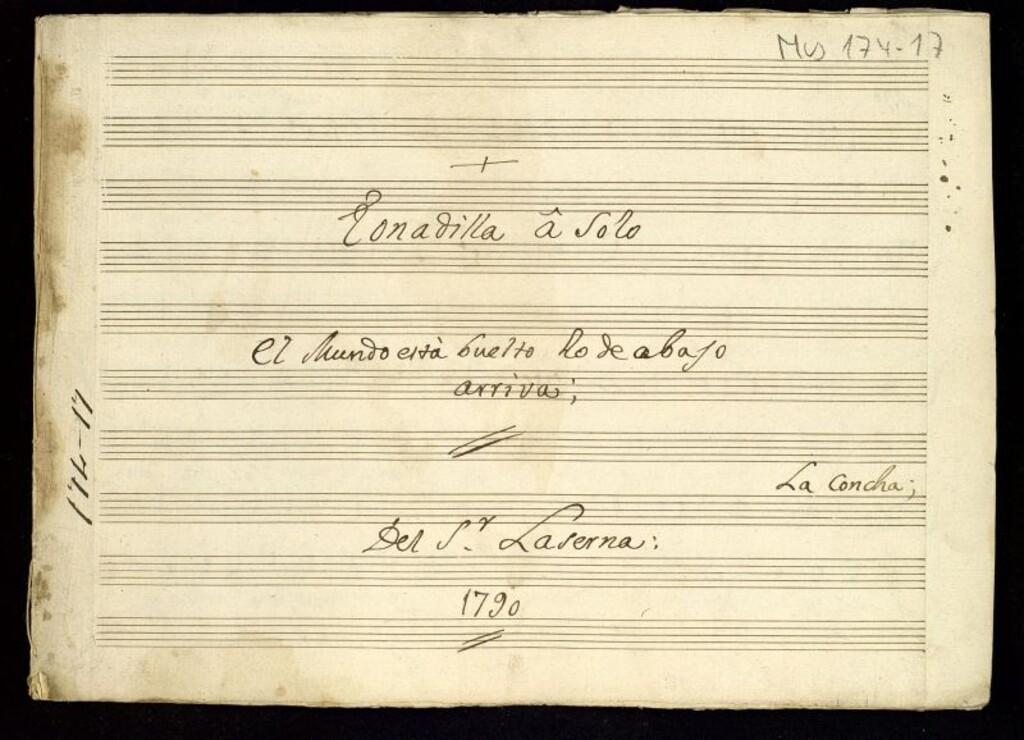 Mus 174-17
+
Tonadilla â Solo
El Mundo està buelto lo de abajo
arriva;
La Concha;
Del S.r Laserna:
1790
174-17